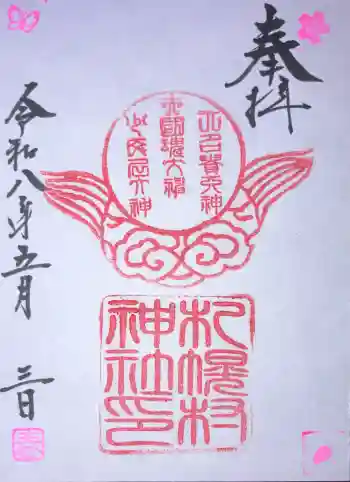 奉拝
大己貴大神
大國魂大神
少彦名大神
札幌村
神社印
令和八年五月
三日